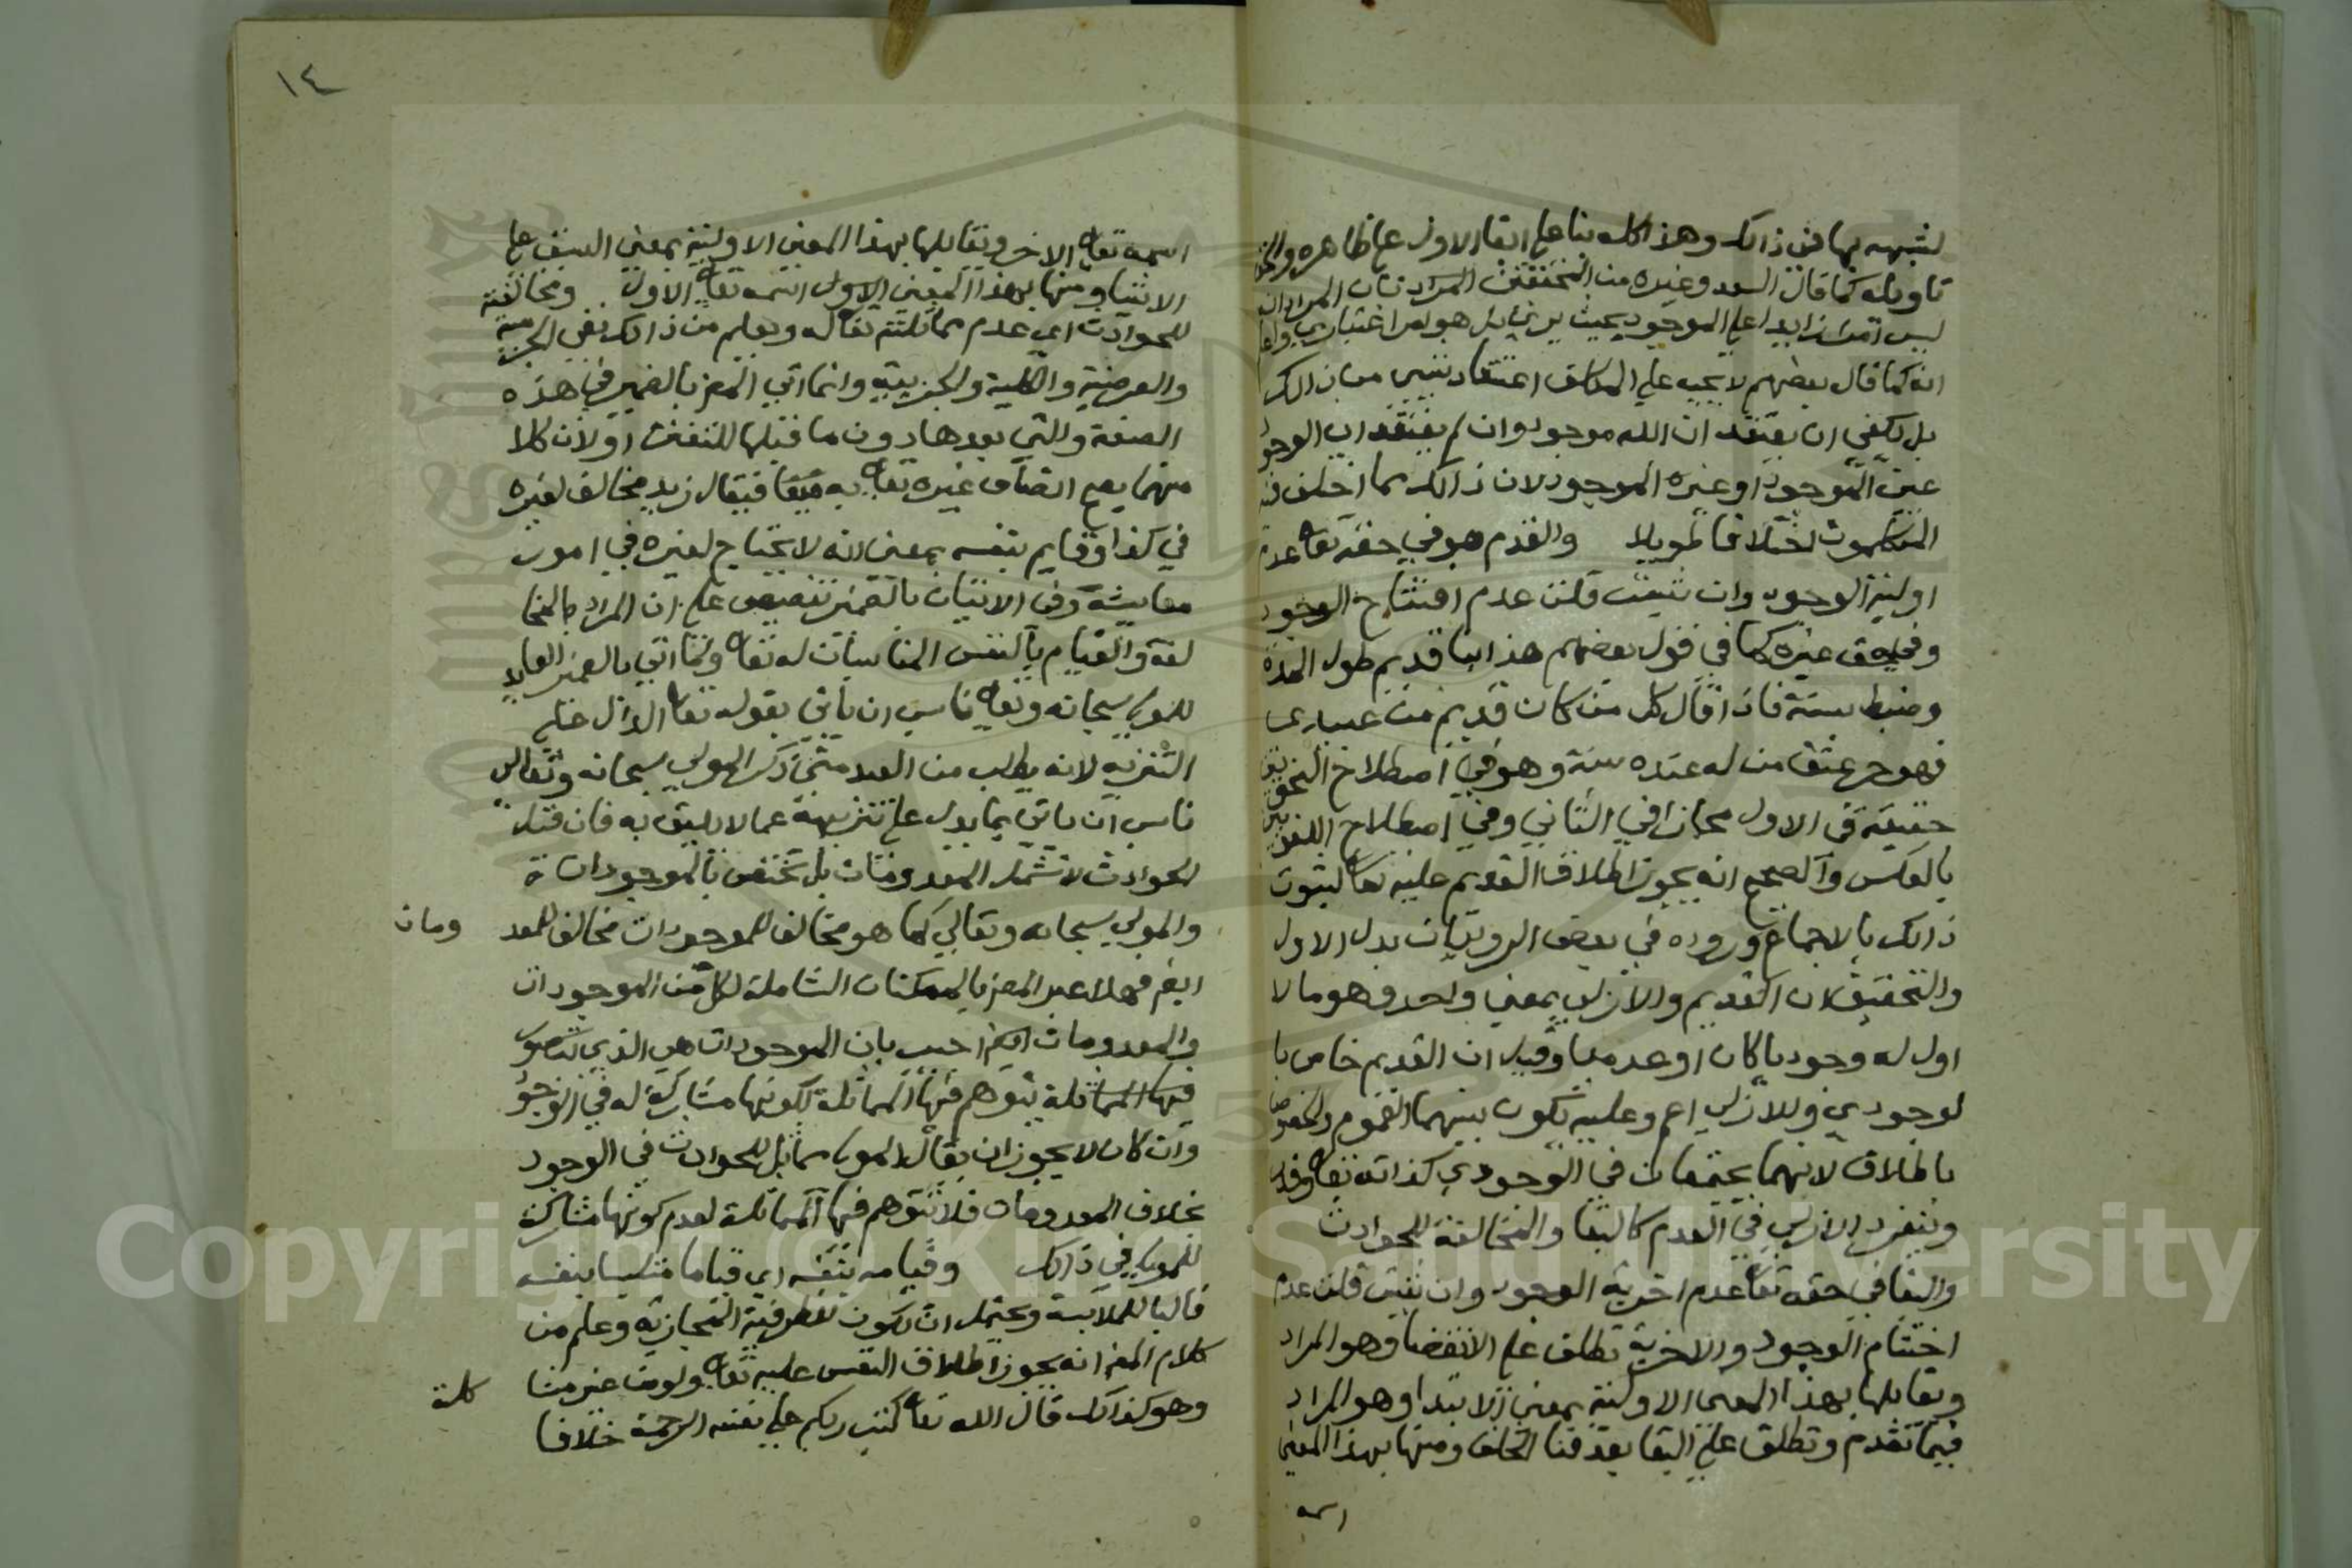 لشبهه بها في ذالك وهذا كله بنا على ابقا الاول على ظاهره والحق
تاويله كما قال السعد وغيره من المحققين المراد بان المراد انه
ليس امرا زايدا على الموجود بحيث يرى بل هو امر اعتباري واعلم
انه كما قال بعضهم لا يجب على المكلف اعتقاد شيي من ذالك
بل يكفي ان يعتقد ان الله موجود وان لم يعتقد ان الوجود
عين الموجود او غيره الموجود لان ذالك مما اختلف فيه
المتكلمون اختلافا طويلا والقدم هو في حقه تعا عدم
اولية الوجود وان شيت قلت عدم افتتاح الوجود
وفي حق غيره كما في قول بعضهم هذا بنا قديم طول المدة
وضبط بسنة فاذا قال كل من كان قديم من عبيدي
فهو حر عتق من له عنده سنة وهو في اصطلاح النحويين
حقيقة في الاول مجاز في الثاني وفي اصطلاح اللغويين
بالعكس والصحيح انه يجوز اطلاق القديم عليه تعا لثبوت
ذالك بالاجماع وروده في بعض الروايات بدل الاول
والتحقيق ان القديم والازلي بمعني واحد وهو ما لا
اول له وجوديا كان او عدميا وقيل ان القديم خاص با
لوجودي وللازلي اعم وعليه تكون بينهما العموم والخصوص
باطلاق لانهما يجتمعان في الوجودي كذاته تعا وقدر
وينفرد الازلي في العدم كالبقا والمخالفة للحوادث
والبقا في حقه تعا عدم اخرية الوجود وان شيت قلت عدم
اختتام الوجود والاخرية تطلق على الانقضا وهو المراد
ويقابلها بهذا المعنى الاولية بمعنى الابتدا وهو المراد
فيما تقدم وتطلق على البقا بعد فنا الخلف ومنها بهذا المعنى
اسمه
١٤
اسمه تعا الاخر ويقابلها بهذا المعنى الاولية بمعنى السبق على
الاشيا ومنها بهذا المعنى الاول اسمه تعا الاول ومخالفته
للحوادث اي عدم مماثلته تعا له ويعلم من ذالك نفي الجرمية
والعرضية والكلية والجزيية وانما اتي المص بالضمير في هذه
الصفة والتي بعدها دون ما قبلها للتفنن او لان كلا
منهما يصح اتصاف غيره تعا به فيقال زيد مخالف لغيره
في كذا وقايم بنفسه بمعنى انه لا يحتاج لغيره في امور
معايشه وفي الاتيان بالضمير تنصيص على ان المراد بالمخا
لفة والقيام بالنفس المناسبان له تعا ولما اتي بالضمير العايد
للمولي سبحانه وتعا ناسب ان ياتي بقوله تعا الدال على
التنزيه لانه يطلب من العبد متى ذكر المولي سبحانه وتعالى
ناسب ان ياتي بما يدل على تنزيهه عما لا يليق به فان قيل
الحوادث لا تشمل المعدومات بل تختص بالموجودات
والمولي سبحانه وتعالي كما هو مخالف للموجودات مخالف للمعد
ومات
ايض فهلا عبر المص بالممكنات الشاملة لكل من الموجودات
والمعدومات ايض اجيب بان الموجودات هي الذي يتصور
فيها المماثلة يتوهم فيها المماثلة لكونها مشاركة له في الوجود
وان كان لا يجوز ان يقال المولي مماثل للحوادث في الوجود
بخلاف المعدومات فلا يتوهم فيها المماثلة لعدم كونها مشاركة
للمولي في ذالك وقيامه بنفسه اي قياما متلبسا بنفسه
فالبا للملابسة ويحتمل ان تكون للظرفية المجازية وعلم من
كلام المص انه يجوز اطلاق النفس عليه تعا ولو من غير مشا
كلة
وهو كذالك قال الله تعا كتب ربكم على نفسه الرحمة خلافا